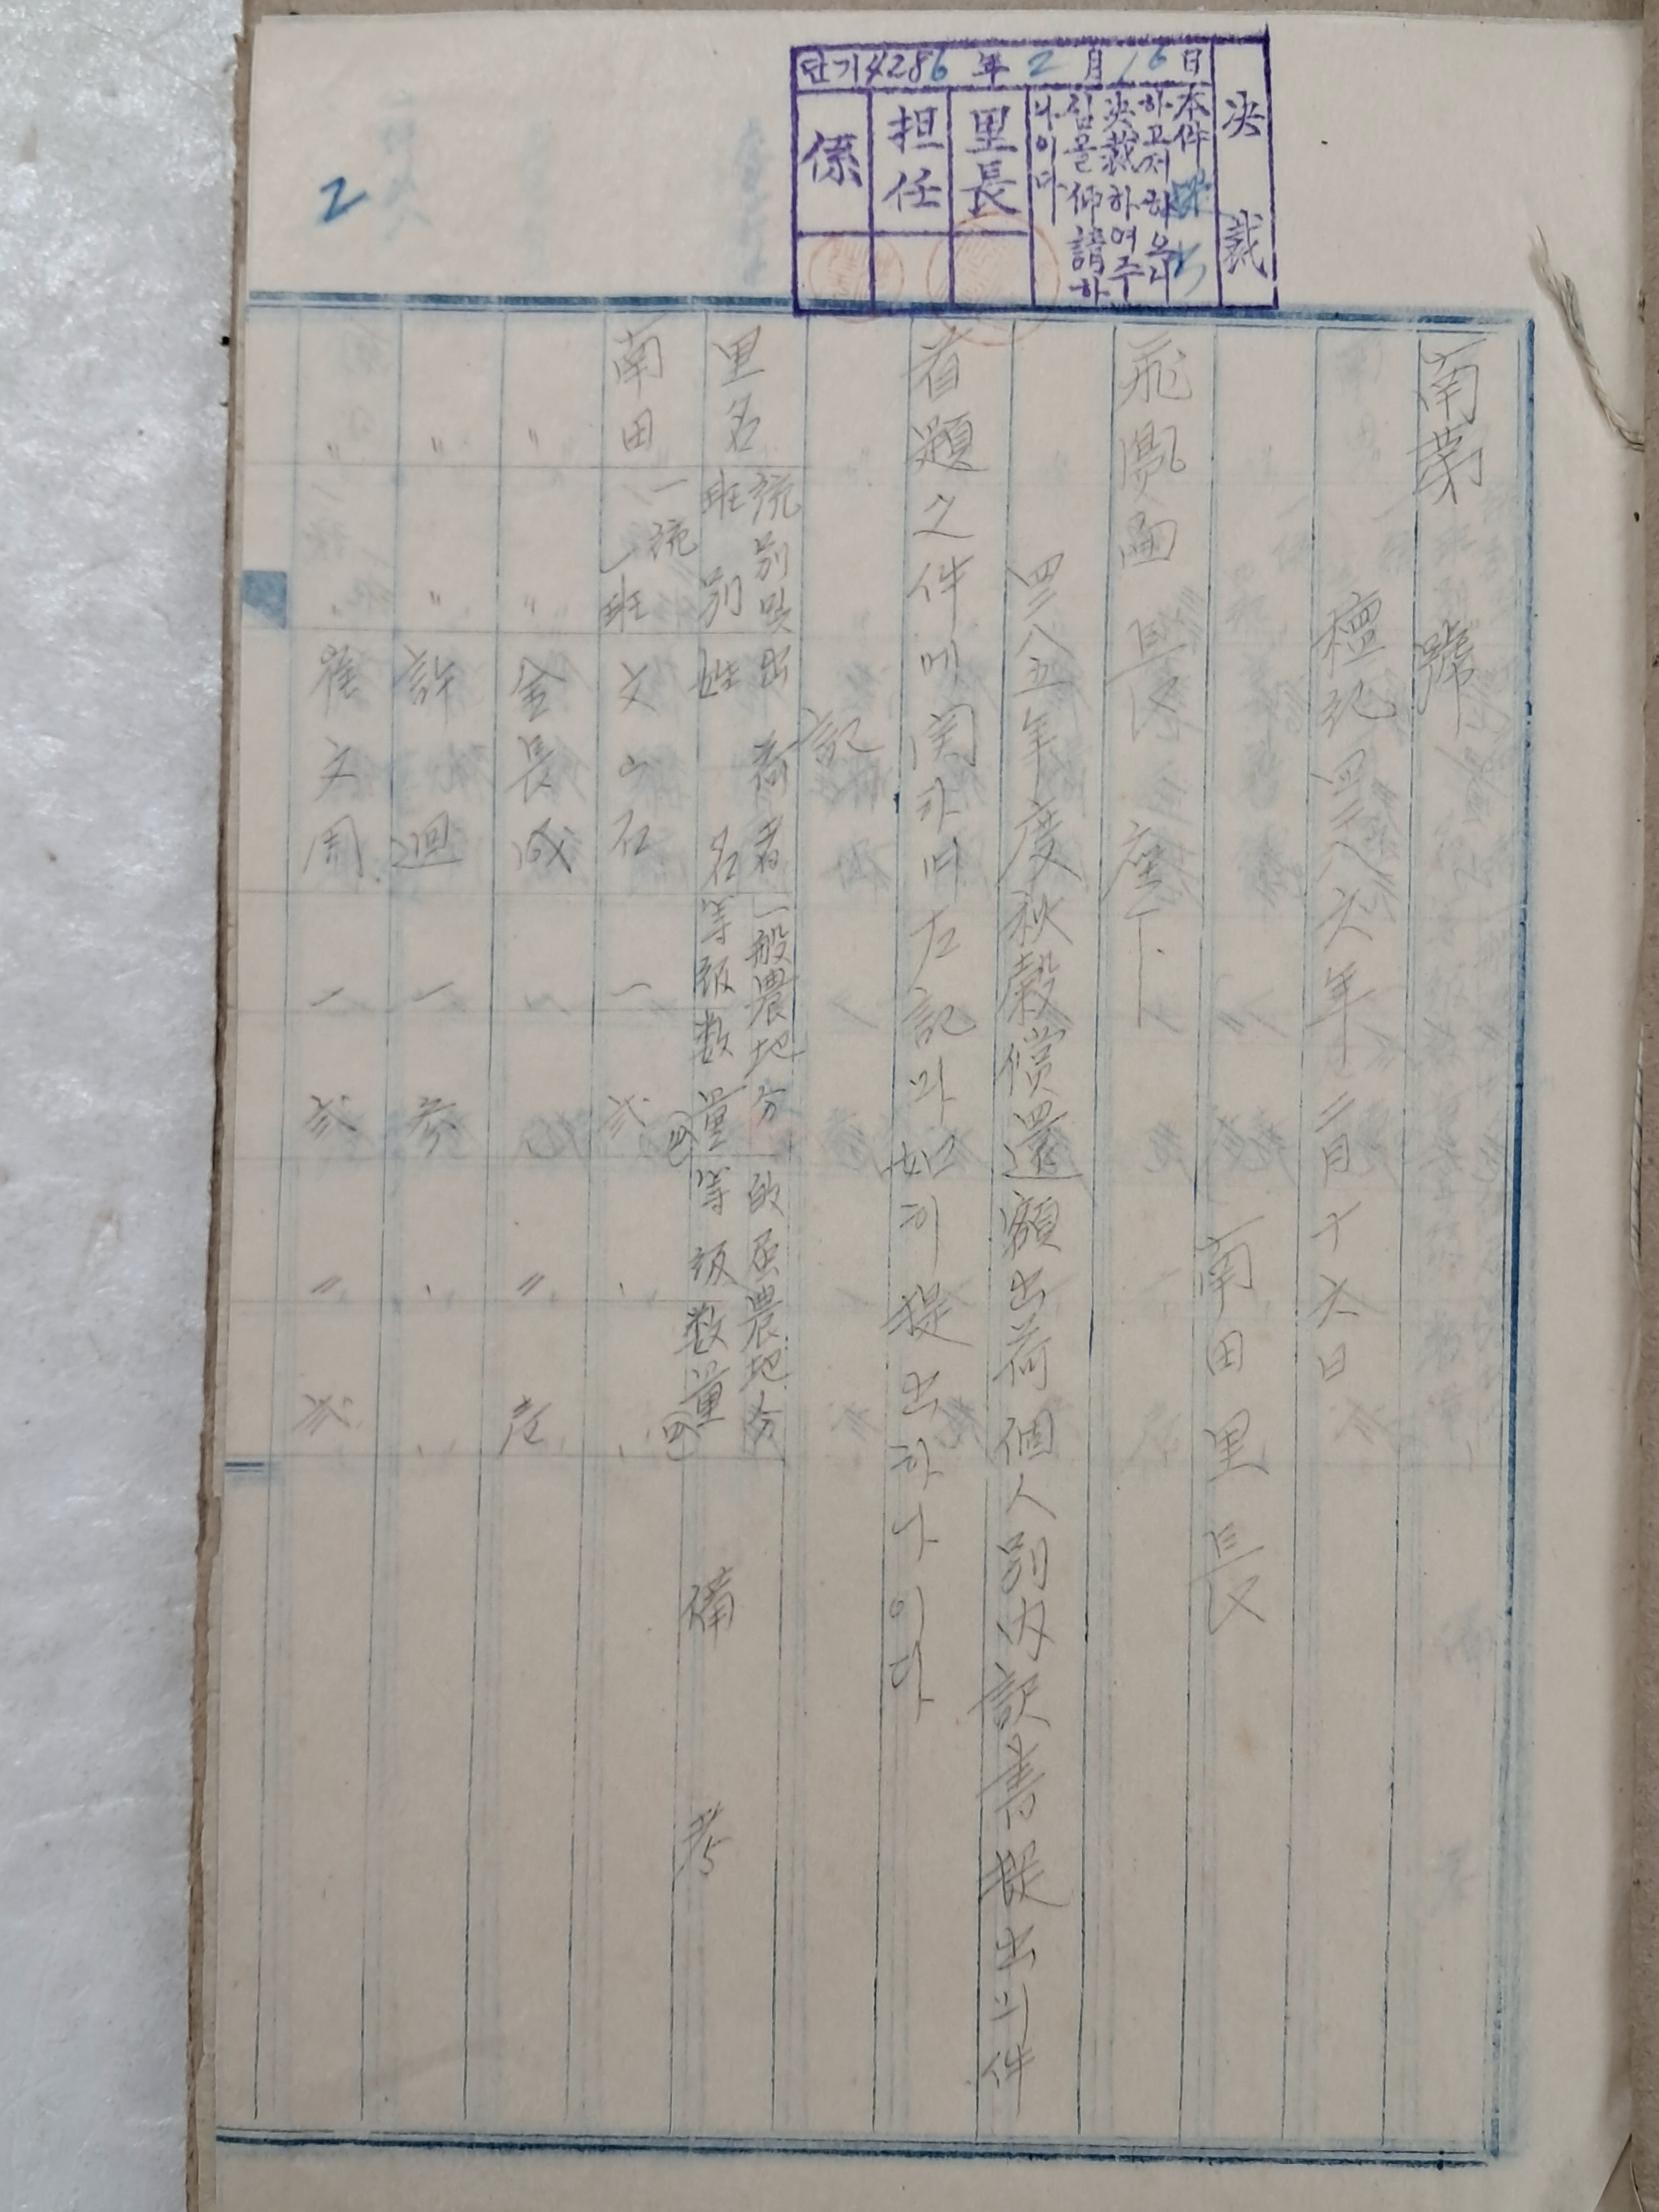 단기 4286 年 2 月 16 日
決裁
本件
하고저 하오니
決裁하여 주
심을 仰請하
나이다
里長
担任
係
2
南第 號
檀紀四二八六年二月十六日
南田里長
飛鳳面長 座下
四二八五年度秋穀償還額出荷個人別內訳書提出의件
首題之件에関하며左記와如히提出하나이다
記
里名 統別 班別 出荷者姓名 一般農地分 等級 数量 農地分 等級 数量 備考
南田 一統一班 文山石 一 弐
〃 〃 金長成 〃 壱
〃 〃 許迴 一 参
〃 〃 崔文周 一 弐 〃 弐